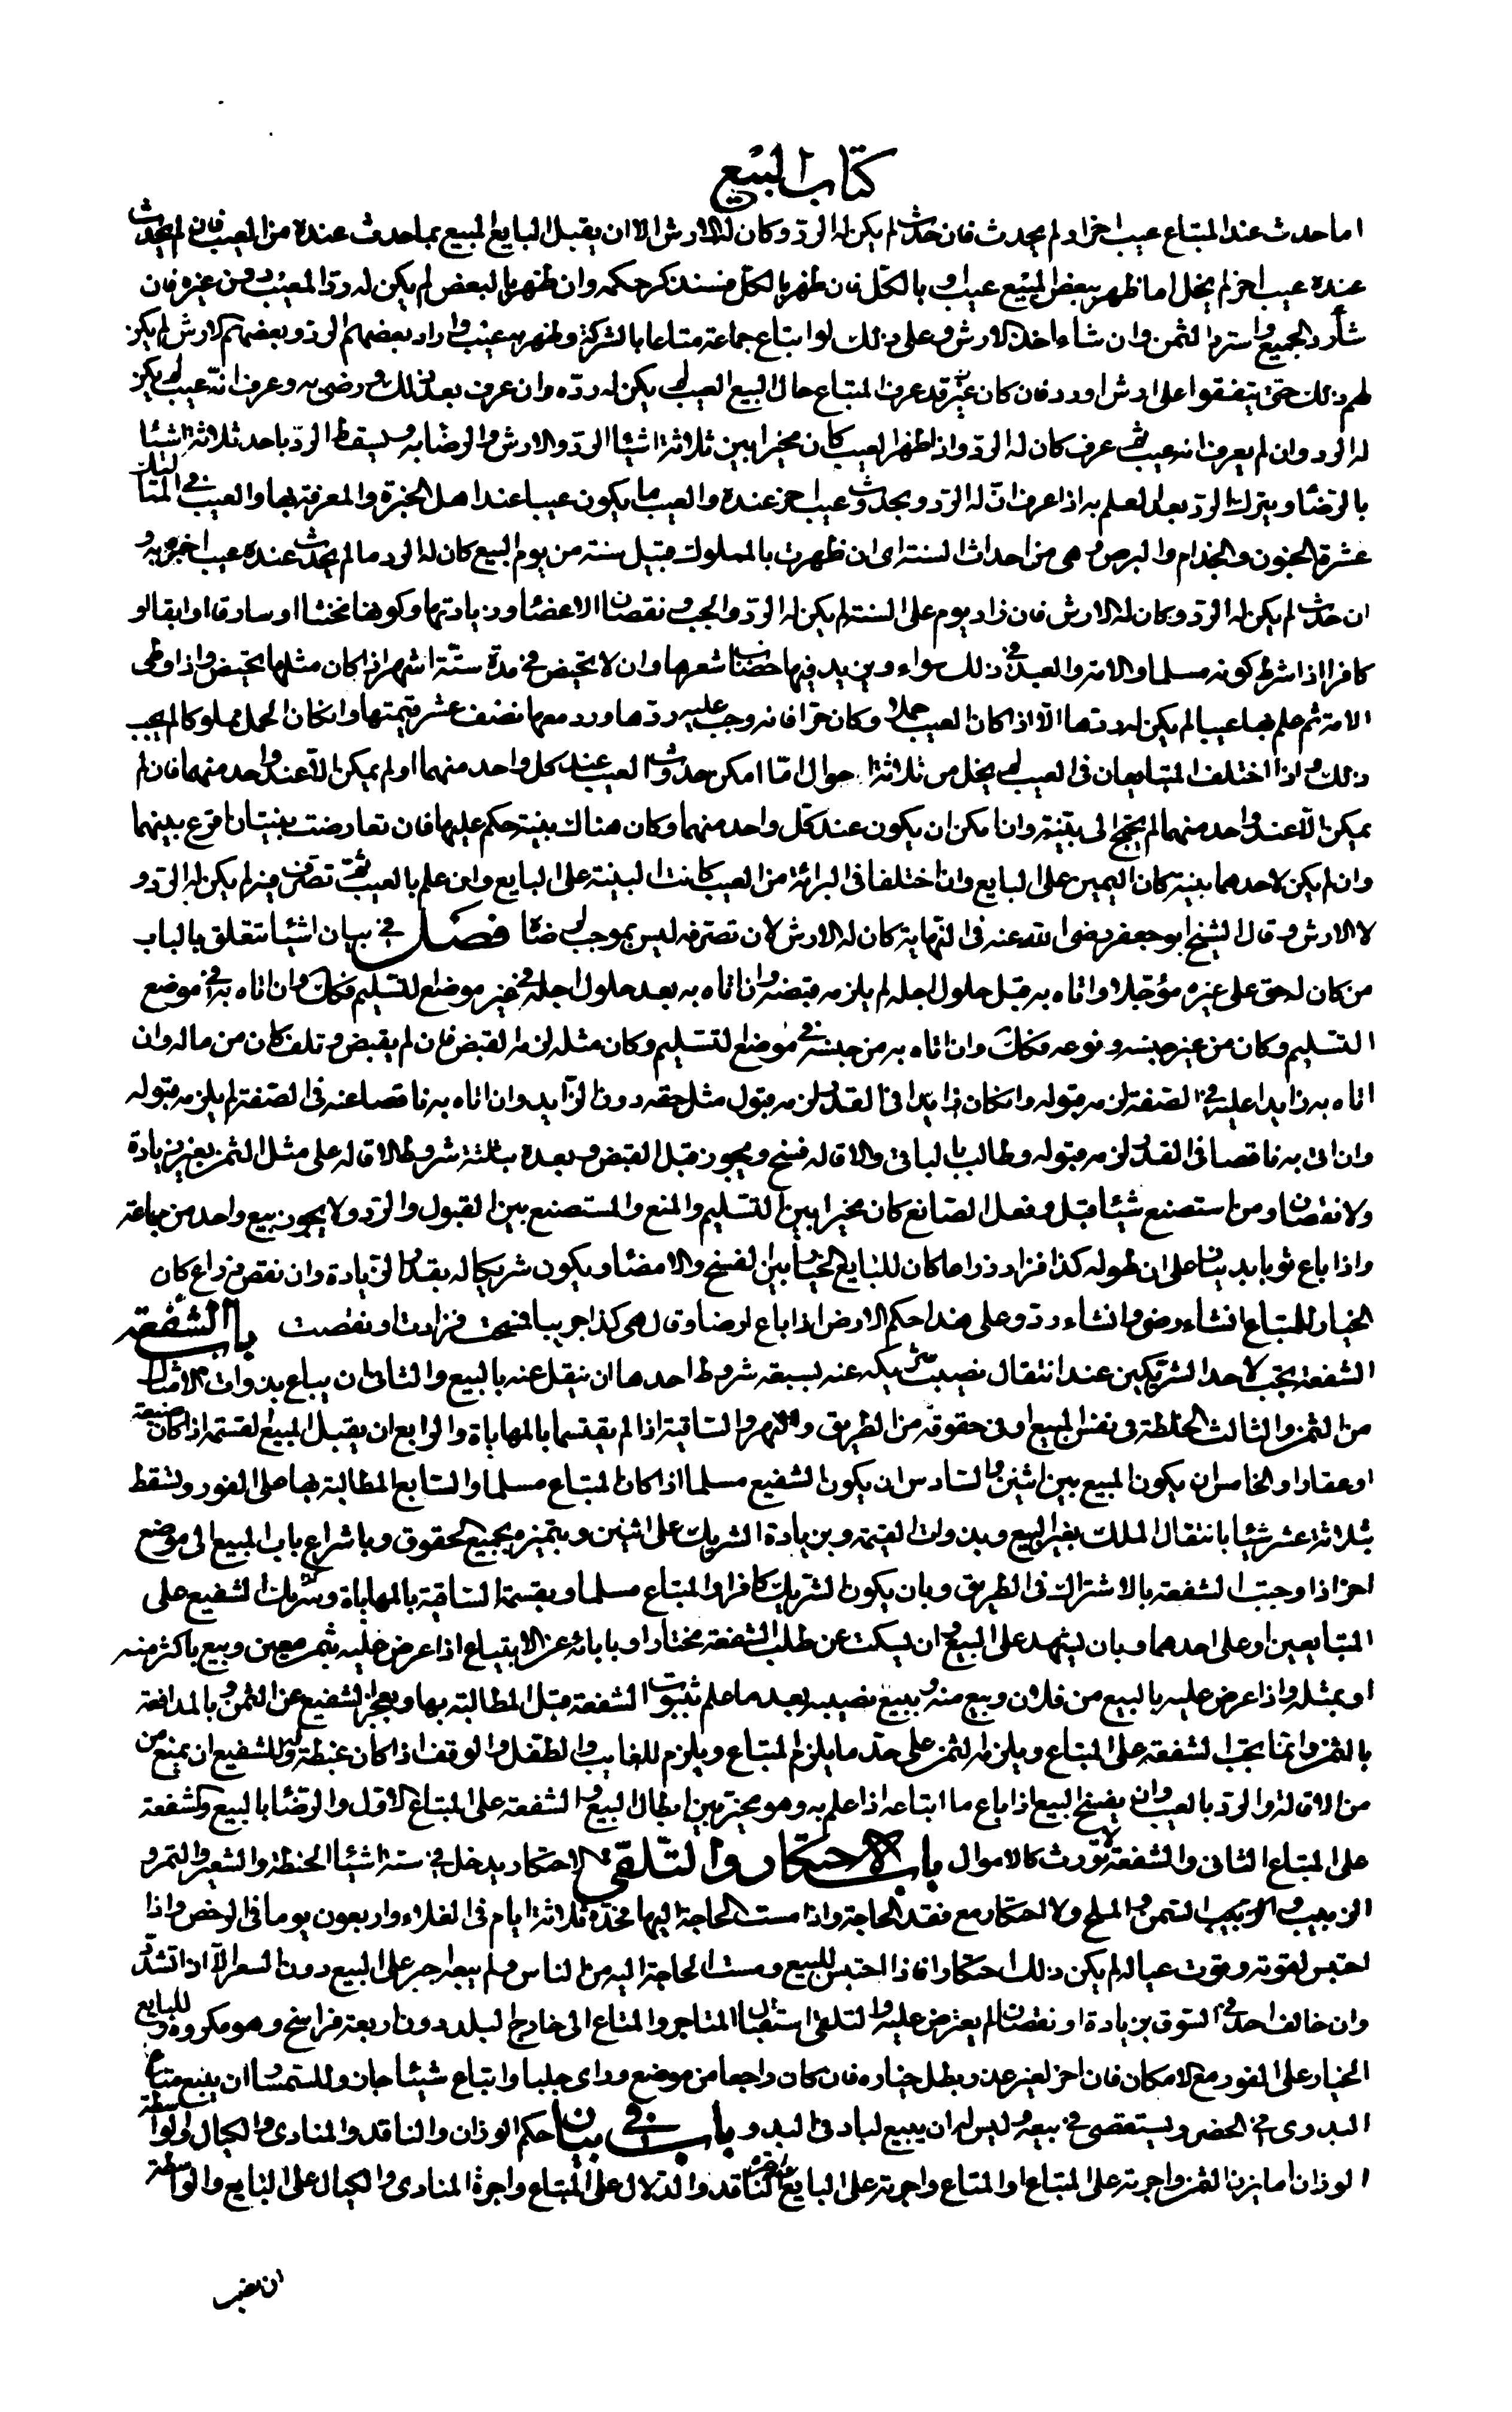 كتاب البيع
اما حدث عند المبتاع عيب اخر او لم يحدث فان حدث لم يكن له الرد وكان له الارش الا ان يقبل البايع المبيع بما حدث عنده من العيب فان لم يحدث
عنده عيب اخر لم يخل اما ظهر ببعض المبيع عيب او بالكل فان ظهر بالكل فسنذكر حكمه وان ظهر بالبعض لم يكن له رد المعيب دون غيره فان
شاء رد الجميع واسترد الثمن وان شاء اخذ الارش وعلى ذلك لو ابتاع جماعة متاعا بالشركة وظهر به عيب واراد بعضهم الرد وبعضهم الارش لم يكن
لهم ذلك حتى يتفقوا على ارش او رد فان كان قد عرف المبتاع حال البيع العيب لم يكن له رده وان عرف بعد ذلك ورضى به وعرف انه عيب لم يكن
له الرد وان لم يعرف انه عيب ثم عرف كان له الرد واذا ظهر العيب كان مخيرا بين ثلاثة اشيا الرد والارش والرضا به ويسقط الرد باحد ثلاثة اشيا
بالرضا وبترك الرد بعد العلم به اذا عرف ان له الرد وبحدوث عيب اخر عنده والعيب ما يكون عيبا عند اهل الخبرة والمعرفة بها والعيب في المماليك
عشرة الجنون والجذام والبرص وهى من احداث السنة اى ان ظهرت بالمملوك قبيل سنة من يوم البيع كان له الرد ما لم يحدث عنده عيب اخر به و
ان حدث لم يكن له الرد وكان له الارش فان زاد يوم على السنة لم يكن له الرد والجب ونقصان الاعضا وزيادتها وكونها مخنثا او سارقا او ابقا او
كافرا اذا شرط كونه مسلما والامة والعبد في ذلك سواء ويزيد فيها خضاب شعرها وان لا تحيض في مدة ستة اشهر ان كان مثلها تحيض واذا وطى
الامة ثم علم بها عيبا لم يكن له ردها الا اذا كان العيب حملا وكان حرا فانه وجب عليه ردها ورد معها نصف عشر قيمتها وان كان الحمل مملوكا لم يجب
ذلك واذا اختلف المتبايعان فى العيب لم يخل من ثلاثة احوال اما امكن حدوث العيب عند كل واحد منهما او لم يمكن الا عند واحد منهما فان لم
يمكن الا عند واحد منهما لم يحتج الى بينة وان امكن ان يكون عند كل واحد منهما وكان هناك بينة حكم عليها فان تعارضت بينتان اقرع بينهما
وان لم يكن لاحدهما بينة كان اليمين على البايع وان اختلفا فى البرائة من العيب كانت البينة على البايع وان علم بالعيب ثم تصرف فيه لم يكن له الرد و
لا الارش وقال الشيخ ابو جعفر رضى الله عنه فى النهاية كان له الارش لان تصرفه ليس بموجب لرضا فصل في بيان اشيا تتعلق بالباب
من كان له حق على غيره مؤجلا واتاه به قبل حلول اجله لم يلزمه قبضه وان اتاه به بعد حلول اجله في غير موضع التسليم فكذلك وان اتاه به في موضع
التسليم وكان من غير جنسه ونوعه فكذلك وان اتاه به من جنسه في موضع التسليم وكان مثله لزمه القبض فان لم يقبض وتلف كان من ماله وان
اتاه به زايدا عليه في الصفة لزمه قبوله وان كان زايدا فى القدر لزمه قبول مثل حقه دون الزايد وان اتاه به ناقصا عنه فى الصفة لم يلزمه قبوله
وان اتى به ناقصا فى القدر لزمه قبوله وطالب بالباقى والاقالة فسخ ويجوز قبل القبض وبعده بثلثة شروط الاقالة على مثل الثمن بغير زيادة
ولا نقصان ومن استصنع شيئا قبل وفعل الصانع كان مخيرا بين التسليم والمنع والمستصنع بين القبول والرد ولا يجوز بيع واحد من جماعة
واذا باع ثوبا بدينار على ان طوله كذا فزاد ذراعا كان للبايع الخيار بين الفسخ والامضا ويكون شريكا له بقدر الزيادة وان نقص ذراع كان
الخيار للمبتاع ان شاء رضى وان شاء رد وعلى هذا حكم الارض اذا باع ارضا وقال هى كذا جريبا فزادت او نقصت باب الشفعة
الشفعة تجب لاحد الشريكين عند انتقال نصيب شريكه عنه بسبعة شروط احدها ان ينتقل عنه بالبيع والثانى ان يباع بذوات الامثال
من الثمن والثالث الخلطة فى نفس المبيع او فى حقوقه من الطريق والنهر والساقية اذا لم يقتسما بالمهاياة والرابع ان يقبل المبيع القسمة اذا كان ضيعة
او عقارا والخامس ان يكون المبيع بين اثنين والسادس ان يكون الشفيع مسلما اذا كان المبتاع مسلما والسابع المطالبة بها على الفور وتسقط
بثلاثة عشر شيئا بانتقال الملك بغير البيع وبذوات القيمة وبزيادة الشريك على اثنين وبتميزه بجميع الحقوق وباشراع باب المبيع الى موضع
اخر اذا وجبت الشفعة بالاشتراك فى الطريق وبان يكون الشريك كافرا والمبتاع مسلما وبقسمة الساقية بالمهاياة وبترك الشفيع على
المتبايعين او على احدهما وبان ليشهد على البيع وان ليسكت عن طلب الشفعة مختارا او بابائه عن الابتياع اذا عرض عليه بثمن معين وبيع باكثر منه
او بمثله واذا عرض عليه بالبيع من فلان وبيع منه وببيع نصيبه بعد ما علم ثبوت الشفعة قبل المطالبة بها وبعجز الشفيع عن الثمن وبالمدافعة
بالثمن وانما تجب الشفعة على المبتاع ويلزمه الثمن على حد ما يلزم المبتاع ويلزم للغايب والطفل والوقف اذا كان غبطة وللشفيع ان يمنع من
من الاقالة والرد بالعيب وان يفسخ البيع اذا باع ما ابتاعه اذا علم به وهو مخير بين ابطال البيع والشفعة على المبتاع الاول والرضا بالبيع والشفعة
على المبتاع الثانى والشفعة لا تورث كالاموال باب الاحتكار والتلقى الاحتكار يدخل في ستة اشيا الحنطة والشعير والتمر و
الزبيب والسمن والملح ولا احتكار مع فقد الحاجة واذا مست الحاجة اليها فحده ثلاثة ايام فى الغلاء واربعون يوما فى الرخص واذا
احتبس لقوته وقوت عياله لم يكن ذلك احتكارا فاذا احتبس للبيع ومست الحاجة اليه من الناس ولم يبعه جبر على البيع دون السعر الا اذا تشدد
وان خالف احد في السوق بزيادة او نقصان لم يعترض عليه والتلقى استقبال المتاجر والمتاع الى خارج البلد دون اربعة فراسخ وهو مكروه وللبايع
الخيار على الفور مع الامكان فان اخر لغير عذر بطل خياره فان كان راجعا من موضع وراى جلبا وابتاع شيئا جاز وللسمسار ان يبيع متاع
البدوى في الحضر ويستقصى في بيعه وليس له ان يبيع لباد فى البدو باب في بيان حكم الوزان والناقد والمنادى والكيال والواسطة
الوزان اما يزن الثمن واجرته على المبتاع او المتاع واجرته على البايع واجرة الناقد والدلال على المبتاع واجرة المنادى والكيال على البايع والواسطة